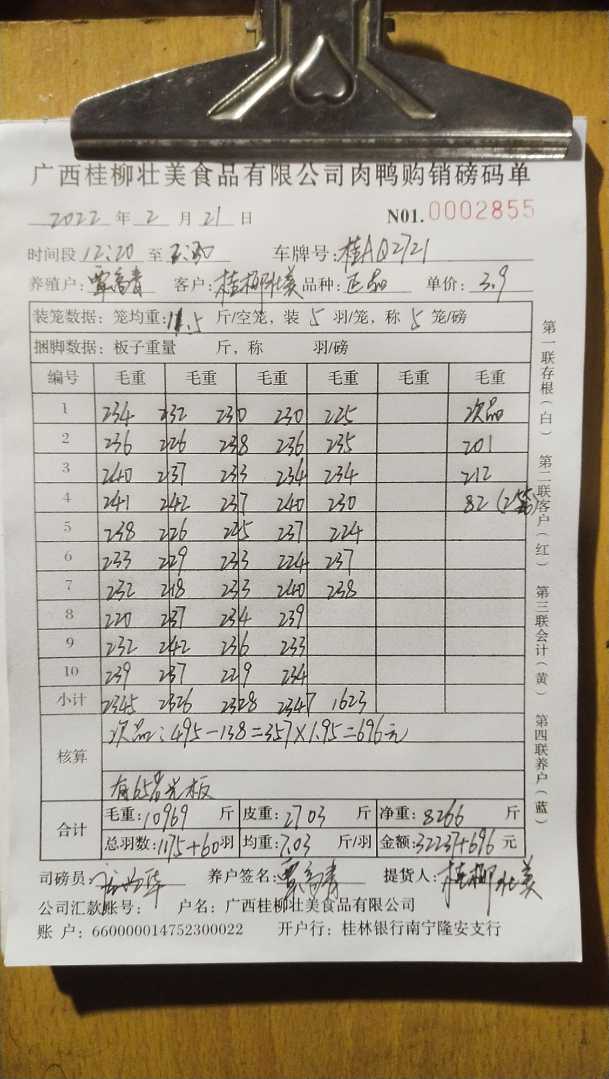 广西桂柳壮美食品有限公司肉鸭购销磅码单
2022 年 2 月 21 日 N01. 0002855
时间段 12:20 至 2:30 车牌号: 桂AQ2721
养殖户: 覃 青 客户: 桂柳壮美 品种: 正品 单价: 3.9
装笼数据: 笼均重: 11.5 斤/空笼, 装 5 羽/笼, 称 5 笼/磅
捆脚数据: 板子重量 斤, 称 羽/磅
编号 毛重 毛重 毛重 毛重 毛重 毛重
1 234 232 230 230 225 次品
2 236 226 238 236 235 201
3 240 237 233 234 234 212
4 241 242 237 240 230 82 (2笼)
5 238 226 225 237 224
6 233 229 233 224 237
7 232 218 233 240 238
8 220 237 234 239
9 232 242 236 233
10 239 237 229 234
小计 2345 2326 2328 2347 1623
核算 次品: 495-138=357×1.95=696元
有65 光板
合计 毛重: 10969 斤 皮重: 2703 斤 净重: 8266 斤
总羽数: 1175+60 羽 均重: 7.03 斤/羽 金额: 32237+696 元
司磅员: 养户签名: 覃 青 提货人: 桂柳壮美
公司汇款账号: 户名: 广西桂柳壮美食品有限公司
账 户: 660000014752300022 开户行: 桂林银行南宁隆安支行
第一联存根(白) 第二联客户(红) 第三联会计(黄) 第四联养户(蓝)